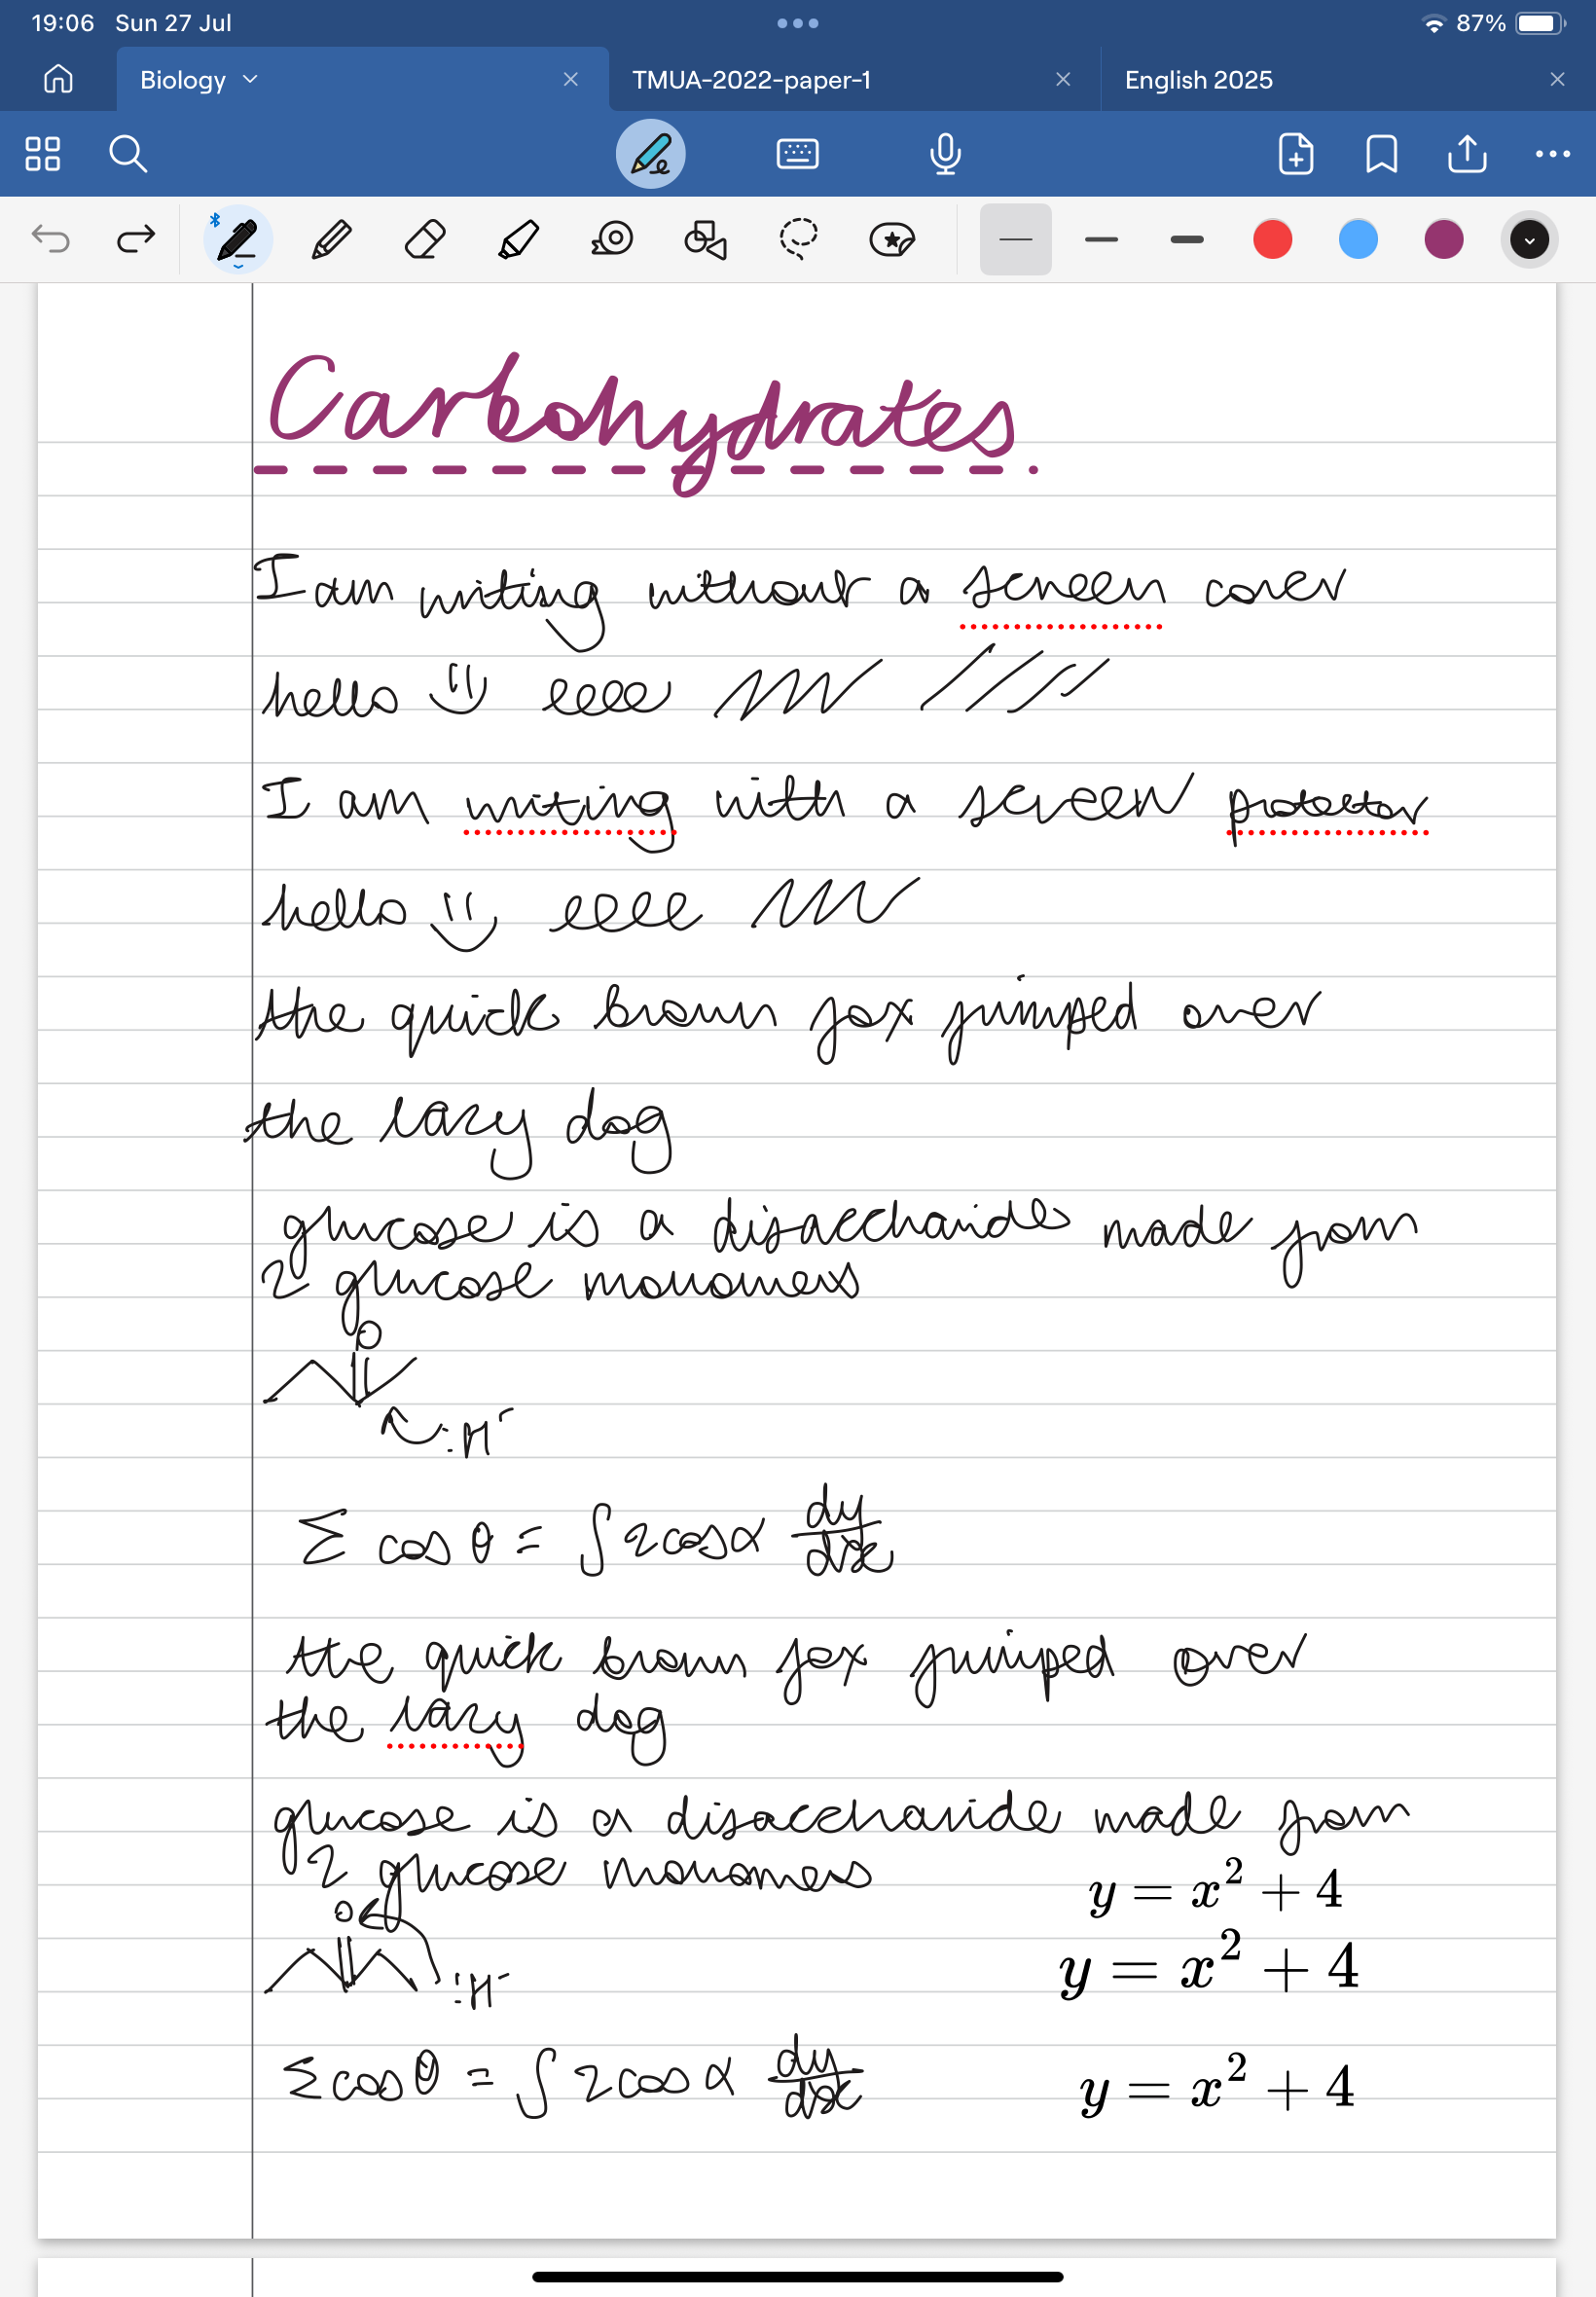 19:06 Sun 27 Jul 87%
Biology TMUA-2022-paper-1 English 2025
Carbohydrates
I am writing without a screen cover
hello eeee
I am writing with a screen protector
hello eeee
the quick brown fox jumped over
the lazy dog
glucose is a disaccharide made from
2 glucose monomers
O
:H⁻
Σ cos θ = ∫ 2 cos α dy/dx
the quick brown fox jumped over
the lazy dog
glucose is a disaccharide made from
2 glucose monomers
y = x² + 4
O
y = x² + 4
:H⁻
Σ cos θ = ∫ 2 cos α dy/dx
y = x² + 4